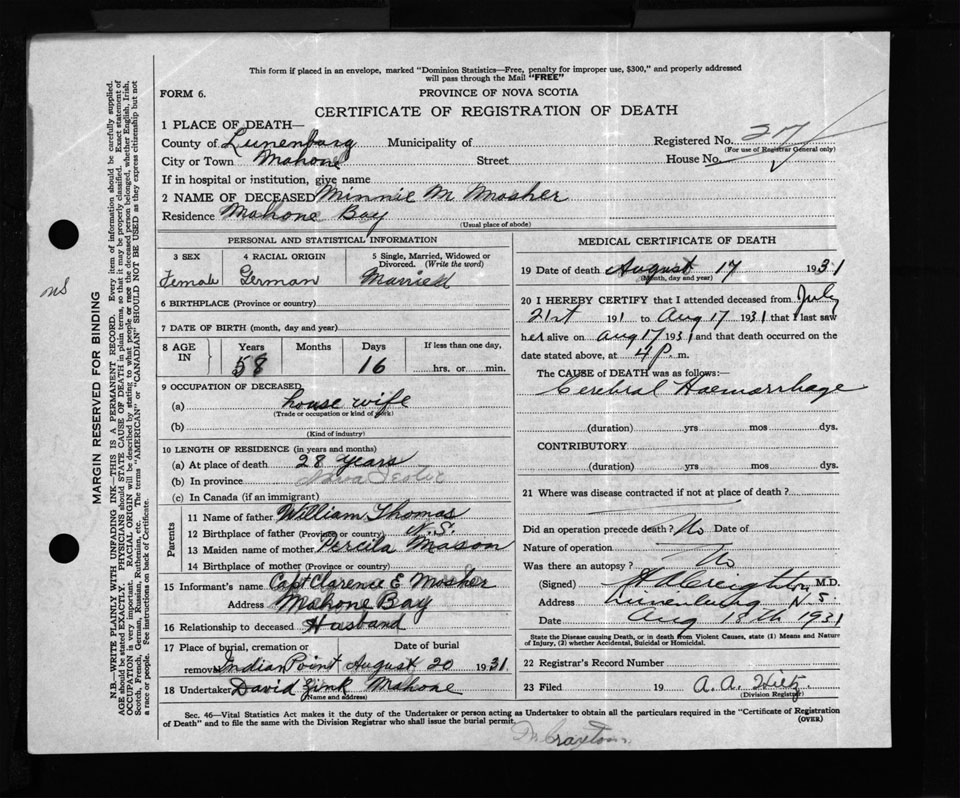 This form if placed in an envelope, marked "Dominion Statistics—Free, penalty for improper use, $300," and properly addressed
will pass through the Mail "FREE"
FORM 6.
PROVINCE OF NOVA SCOTIA
CERTIFICATE OF REGISTRATION OF DEATH
1 PLACE OF DEATH—
County of Lunenburg Municipality of Registered No. 27
(For use of Registrar General only)
City or Town Mahone Street House No.
If in hospital or institution, give name
2 NAME OF DECEASED Minnie M Mosher
Residence Mahone Bay
(Usual place of abode)
PERSONAL AND STATISTICAL INFORMATION
3 SEX 4 RACIAL ORIGIN 5 Single, Married, Widowed or Divorced. (Write the word)
Female German Married
6 BIRTHPLACE (Province or country)
7 DATE OF BIRTH (month, day and year)
8 AGE IN Years Months Days If less than one day,
58 16 hrs. or min.
9 OCCUPATION OF DECEASED
(a) house wife
(Trade or occupation or kind of work)
(b)
(Kind of industry)
10 LENGTH OF RESIDENCE (in years and months)
(a) At place of death 28 years
(b) In province Nova Scotia
(c) In Canada (if an immigrant)
Parents
11 Name of father William Thomas
12 Birthplace of father (Province or country) N.S.
13 Maiden name of mother Percila Mason
14 Birthplace of mother (Province or country)
15 Informant's name Capt Clarence E Mosher
Address Mahone Bay
16 Relationship to deceased Husband
17 Place of burial, cremation or removal Date of burial
Indian Point August 20 1931
18 Undertaker David Zink Mahone
(Name and address)
MEDICAL CERTIFICATE OF DEATH
19 Date of death August 17 1931
(Month, day and year)
20 I HEREBY CERTIFY that I attended deceased from July
21st 191 to Aug 17 1931 that I last saw
her alive on Aug 17 1931 and that death occurred on the
date stated above, at 4 p. m.
The CAUSE of DEATH was as follows:
Cerebral Haemorrhage
(duration) yrs mos dys.
CONTRIBUTORY
(duration) yrs mos dys.
21 Where was disease contracted if not at place of death?
Did an operation precede death? No Date of
Nature of operation
Was there an autopsy? No
(Signed) Creighton M.D.
Address Lunenburg N.S.
Date Aug 18th 1931
State the Disease causing Death, or in death from Violent Causes, state (1) Means and Nature
of Injury, (2) whether Accidental, Suicidal or Homicidal.
22 Registrar's Record Number
23 Filed 19 A. A. Hiltz
(Division Registrar)
Sec. 46—Vital Statistics Act makes it the duty of the Undertaker or person acting as Undertaker to obtain all the particulars required in the "Certificate of Registration
of Death" and to file the same with the Division Registrar who shall issue the burial permit.
(OVER)
MARGIN RESERVED FOR BINDING
N.B.—WRITE PLAINLY WITH UNFADING INK—THIS IS A PERMANENT RECORD. Every item of information should be carefully supplied.
AGE should be stated EXACTLY. PHYSICIANS should STATE CAUSE OF DEATH in plain terms, so that it may be properly classified. Exact statement of
OCCUPATION is very important. RACIAL ORIGIN will be described by stating to what people or race the deceased person belonged, whether English, Irish,
Scotch, French, German, Russian, Ruthenian, etc. The terms "AMERICAN" or "CANADIAN" SHOULD NOT BE USED as they express citizenship but not
a race or people. See instructions on back of Certificate.